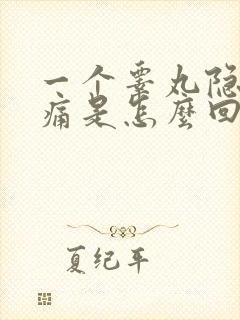 一个睾丸隐
痛是怎麽回
夏纪年